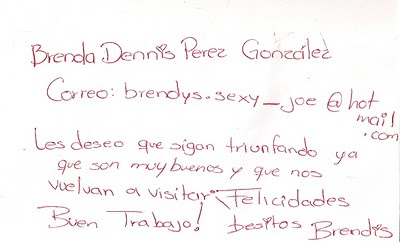 Brenda Dennis Perez González
Correo: brendys.sexy_joe@hot
mail
.com
Les deseo que sigan triunfando ya
que son muy buenos y que nos
vuelvan a visitar. Felicidades
Buen Trabajo! besitos Brendis